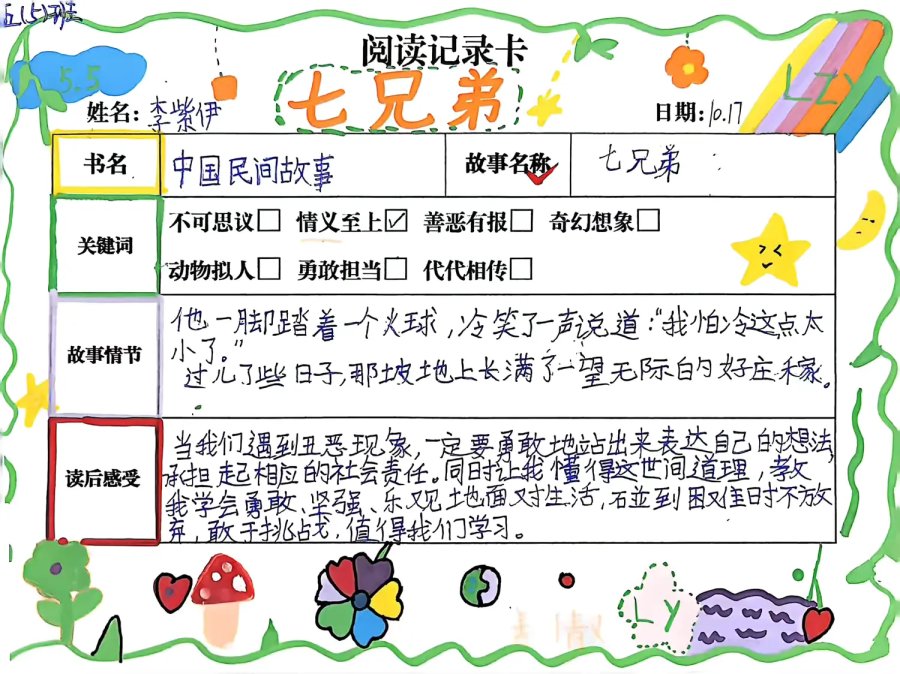 五(5)班
阅读记录卡
5.5
LZY
七兄弟
姓名:李紫伊
日期:10.17
书名 中国民间故事 故事名称 七兄弟
关键词
不可思议☐ 情义至上☑ 善恶有报☐ 奇幻想象☐
动物拟人☐ 勇敢担当☐ 代代相传☐
故事情节
他一脚踏着一个火球,冷笑了一声说道:“我怕冷这点太
小了。”
过几了些日子,那坡地上长满了一望无际的好庄稼。
读后感受
当我们遇到丑恶现象,一定要勇敢地站出来表达自己的想法,
承担起相应的社会责任。同时让我懂得这世间道理,教
我学会勇敢、坚强、乐观地面对生活,碰到困难时不放
弃,敢于挑战,值得我们学习。
LY